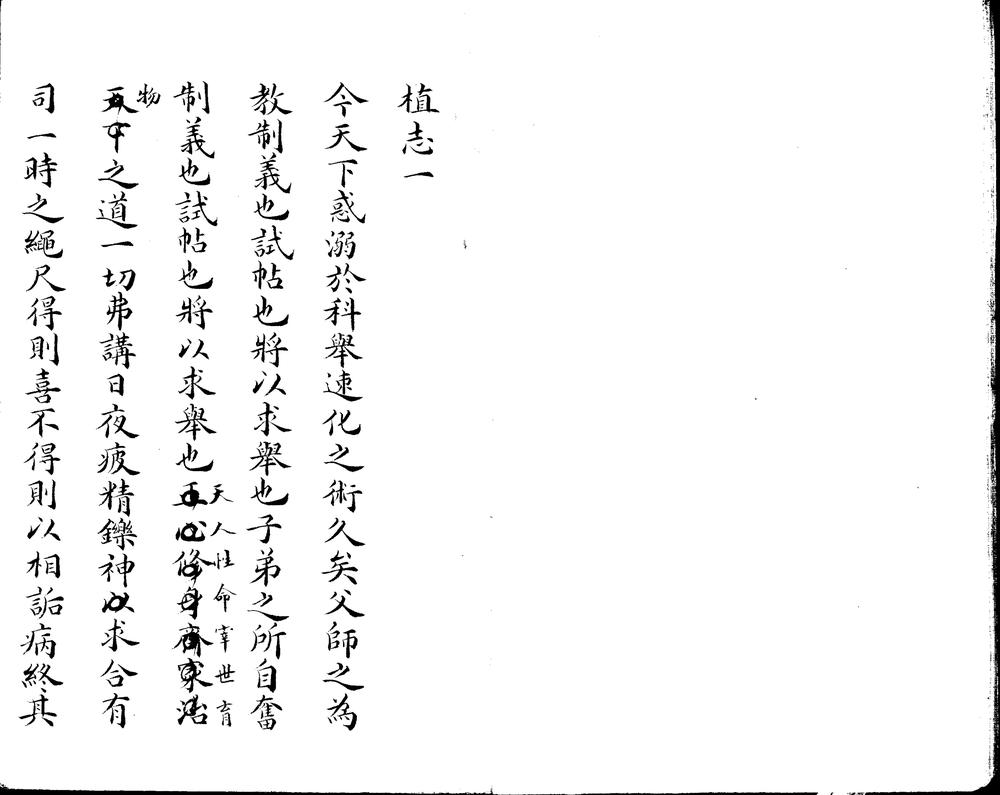 植志一
今天下惑溺於科舉速化之術久矣父師之為
教制義也試帖也將以求舉也子弟之所自奮
制義也試帖也將以求舉也正心修身齊家治
天人性命宰世育
物
天下之道一切弗講日夜疲精鑠神以求合有
司一時之繩尺得則喜不得則以相詬病終其